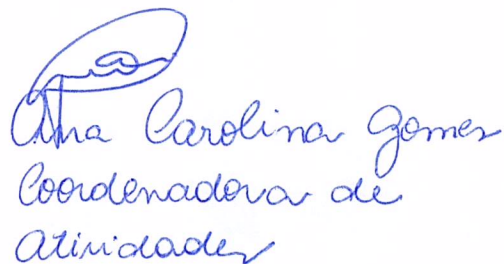 Ana Carolina Gomes
Coordenadora de
atividades